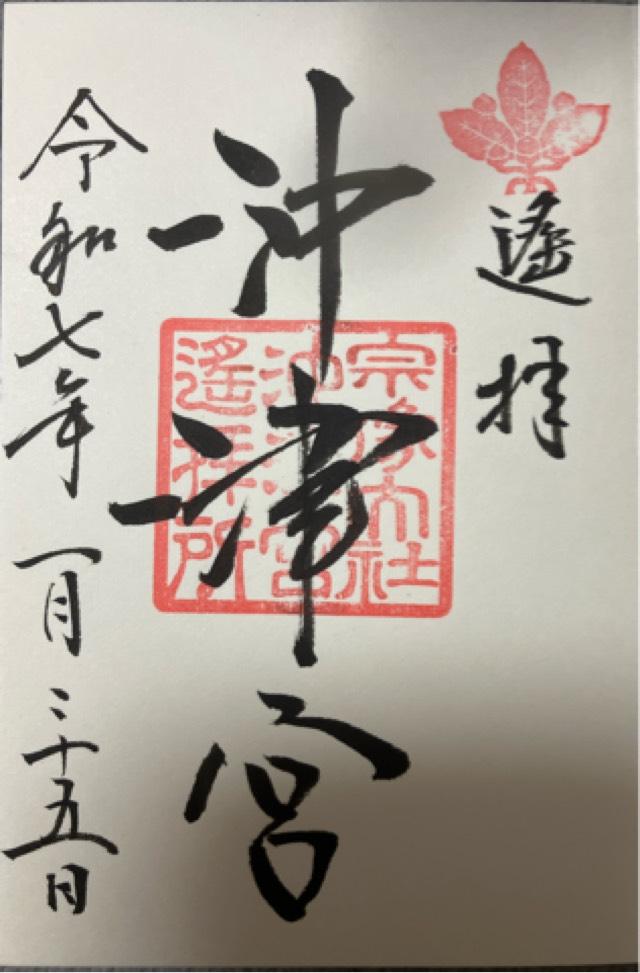 遙拝
沖津宮
宗像大社
沖津宮
遙拝所
令和七年一月二十五日